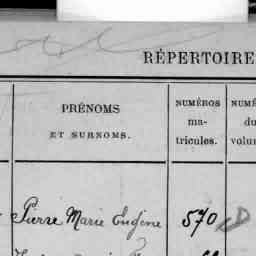 RÉPERTOIRE
PRÉNOMS
ET SURNOMS.
NUMÉROS
ma-
tricules.
NUMÉ
du
volum
Pierre Marie Eugène 570